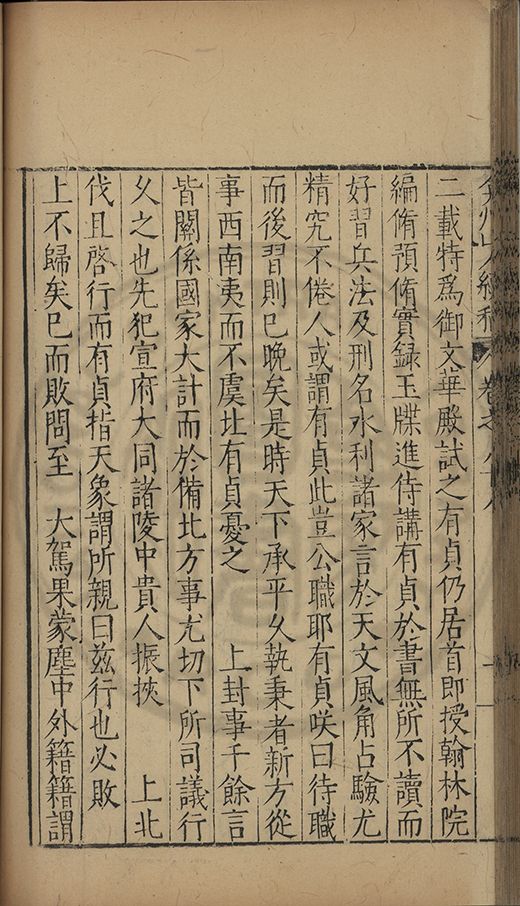 二載特爲御文華殿試之有貞仍居首卽授翰林院
編脩預脩實録玉牒進侍講有貞於書無所不讀而
好習兵法及刑名水利諸家言於天文風角占驗尤
精究不倦人或謂有貞此豈公職耶有貞咲曰待職
而後習則已晩矣是時天下承平久執秉者新方從
事西南夷而不虞北有貞憂之　上封事千餘言
皆關係國家大計而於備北方事尤切下所司議行
久之也先犯宣府大同諸陵中貴人振挾　上北
伐且啓行而有貞指天象謂所親曰兹行也必敗
上不歸矣已而敗問至　大駕果蒙塵中外籍籍謂